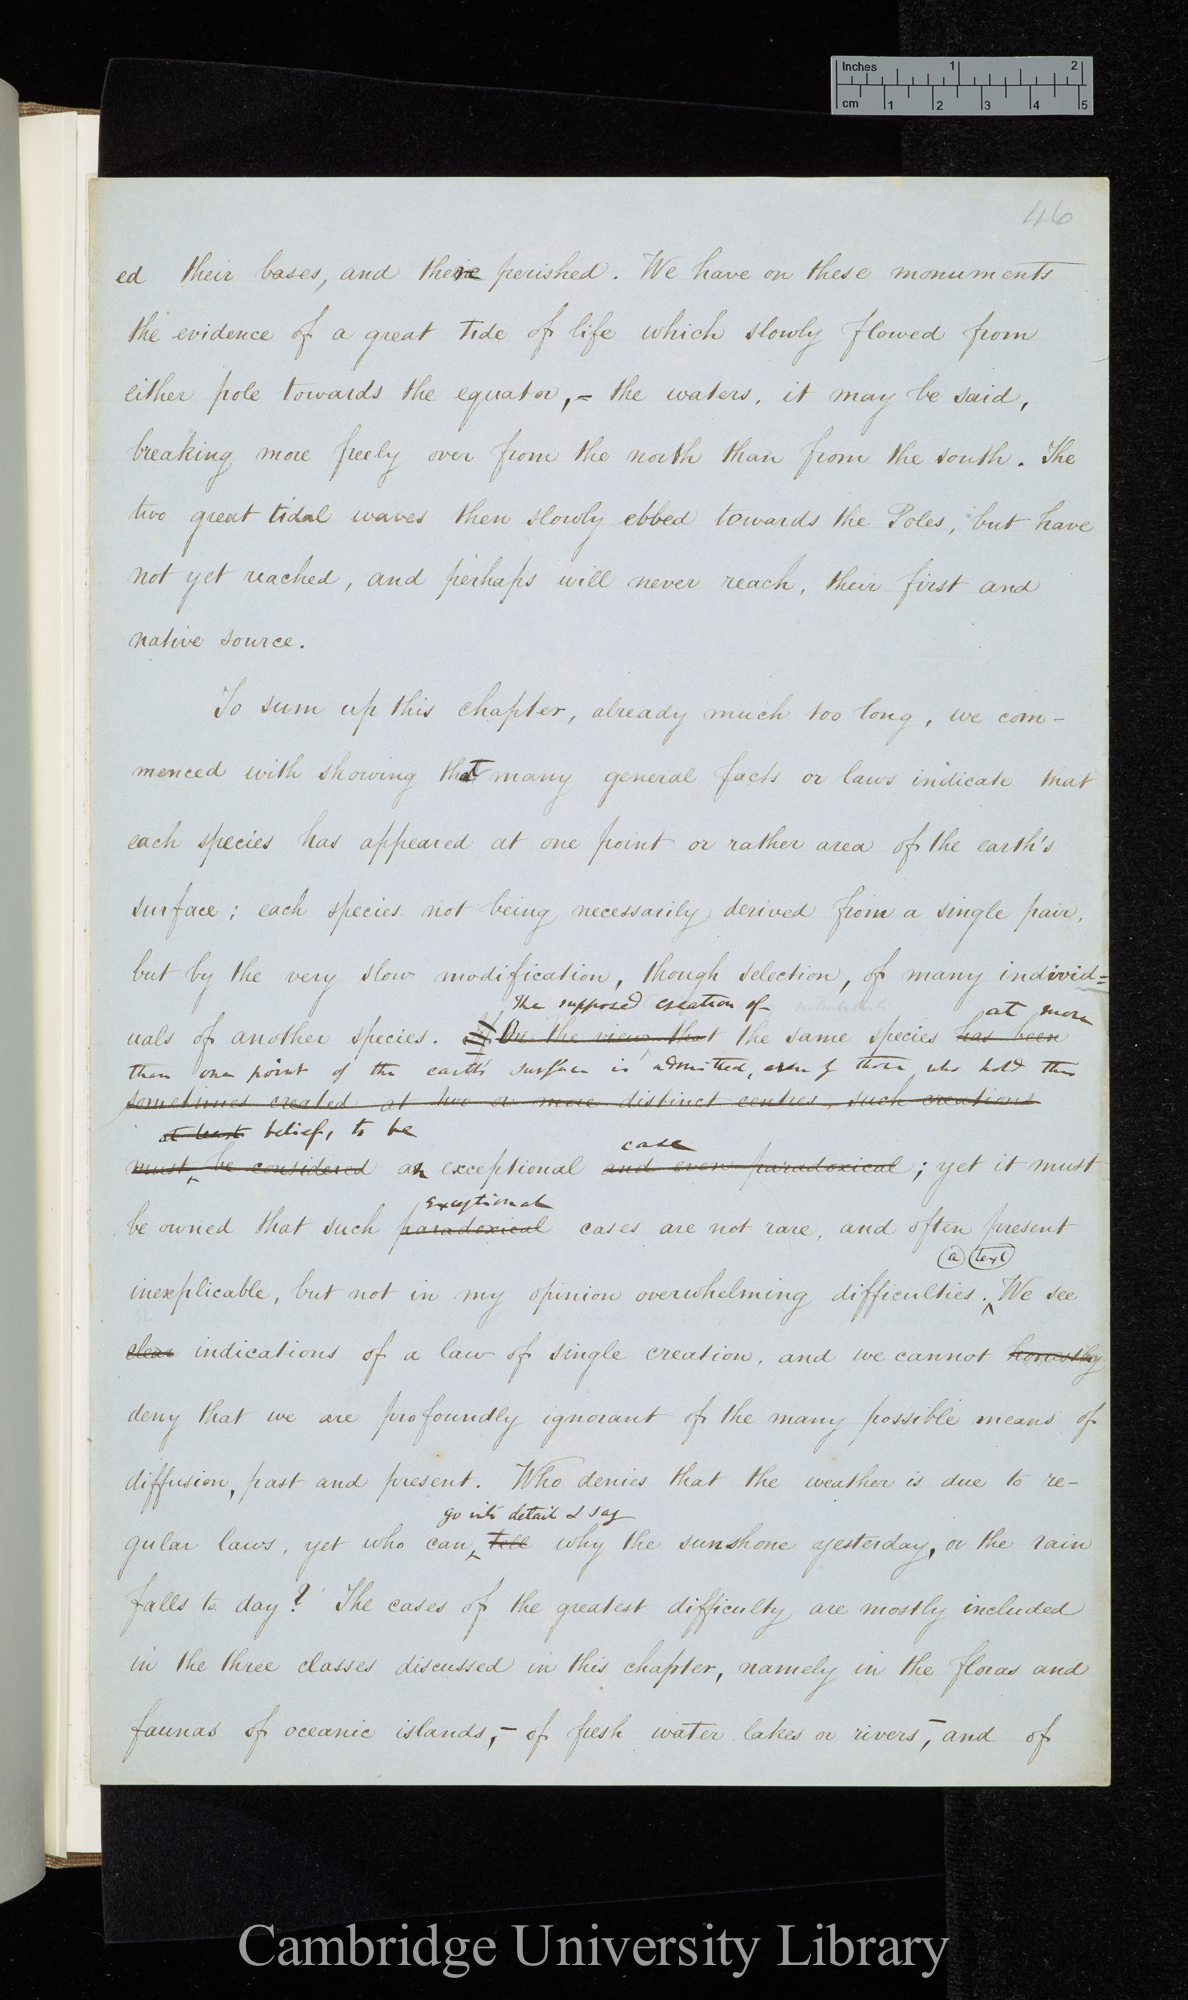 Inches 1 2
cm 1 2 3 4 5
46
ed their bases, and there perished. We have on these monuments
the evidence of a great tide of life which slowly flowed from
either pole towards the equator,- the waters, it may be said,
breaking more freely over from the north than from the south. The
two great tidal waves then slowly ebbed towards the Poles, but have
not yet reached, and perhaps will never reach, their first and
native source.
To sum up this chapter, already much too long, we com-
menced with showing that many general facts or laws indicate that
each species has appeared at one point or rather area of the earth's
surface; each species not being necessarily derived from a single pair,
but by the very slow modification, though selection, of many individ=
The supposed creation of at more
uals of another species. On the view that the same species has been
than one point of the earth's surface is admitted, even by those who hold this
sometimes created at two or more distinct centres, such creations
at least belief, to be
case
must be considered an exceptional and even paradoxical; yet it must
exceptional
be owned that such paradoxical cases are not rare, and often present
(a) (text)
inexplicable, but not in my opinion overwhelming difficulties. We see
clear indications of a law of single creation, and we cannot honestly
deny that we are profoundly ignorant of the many possible means of
diffusion, past and present. Who denies that the weather is due to re-
go into detail & say
gular laws, yet who can tell why the sun shone yesterday, or the rain
falls to day? The cases of the greatest difficulty are mostly included
in the three classes discussed in this chapter, namely in the floras and
faunas of oceanic islands,- of fresh water lakes or rivers,- and of
Cambridge University Library